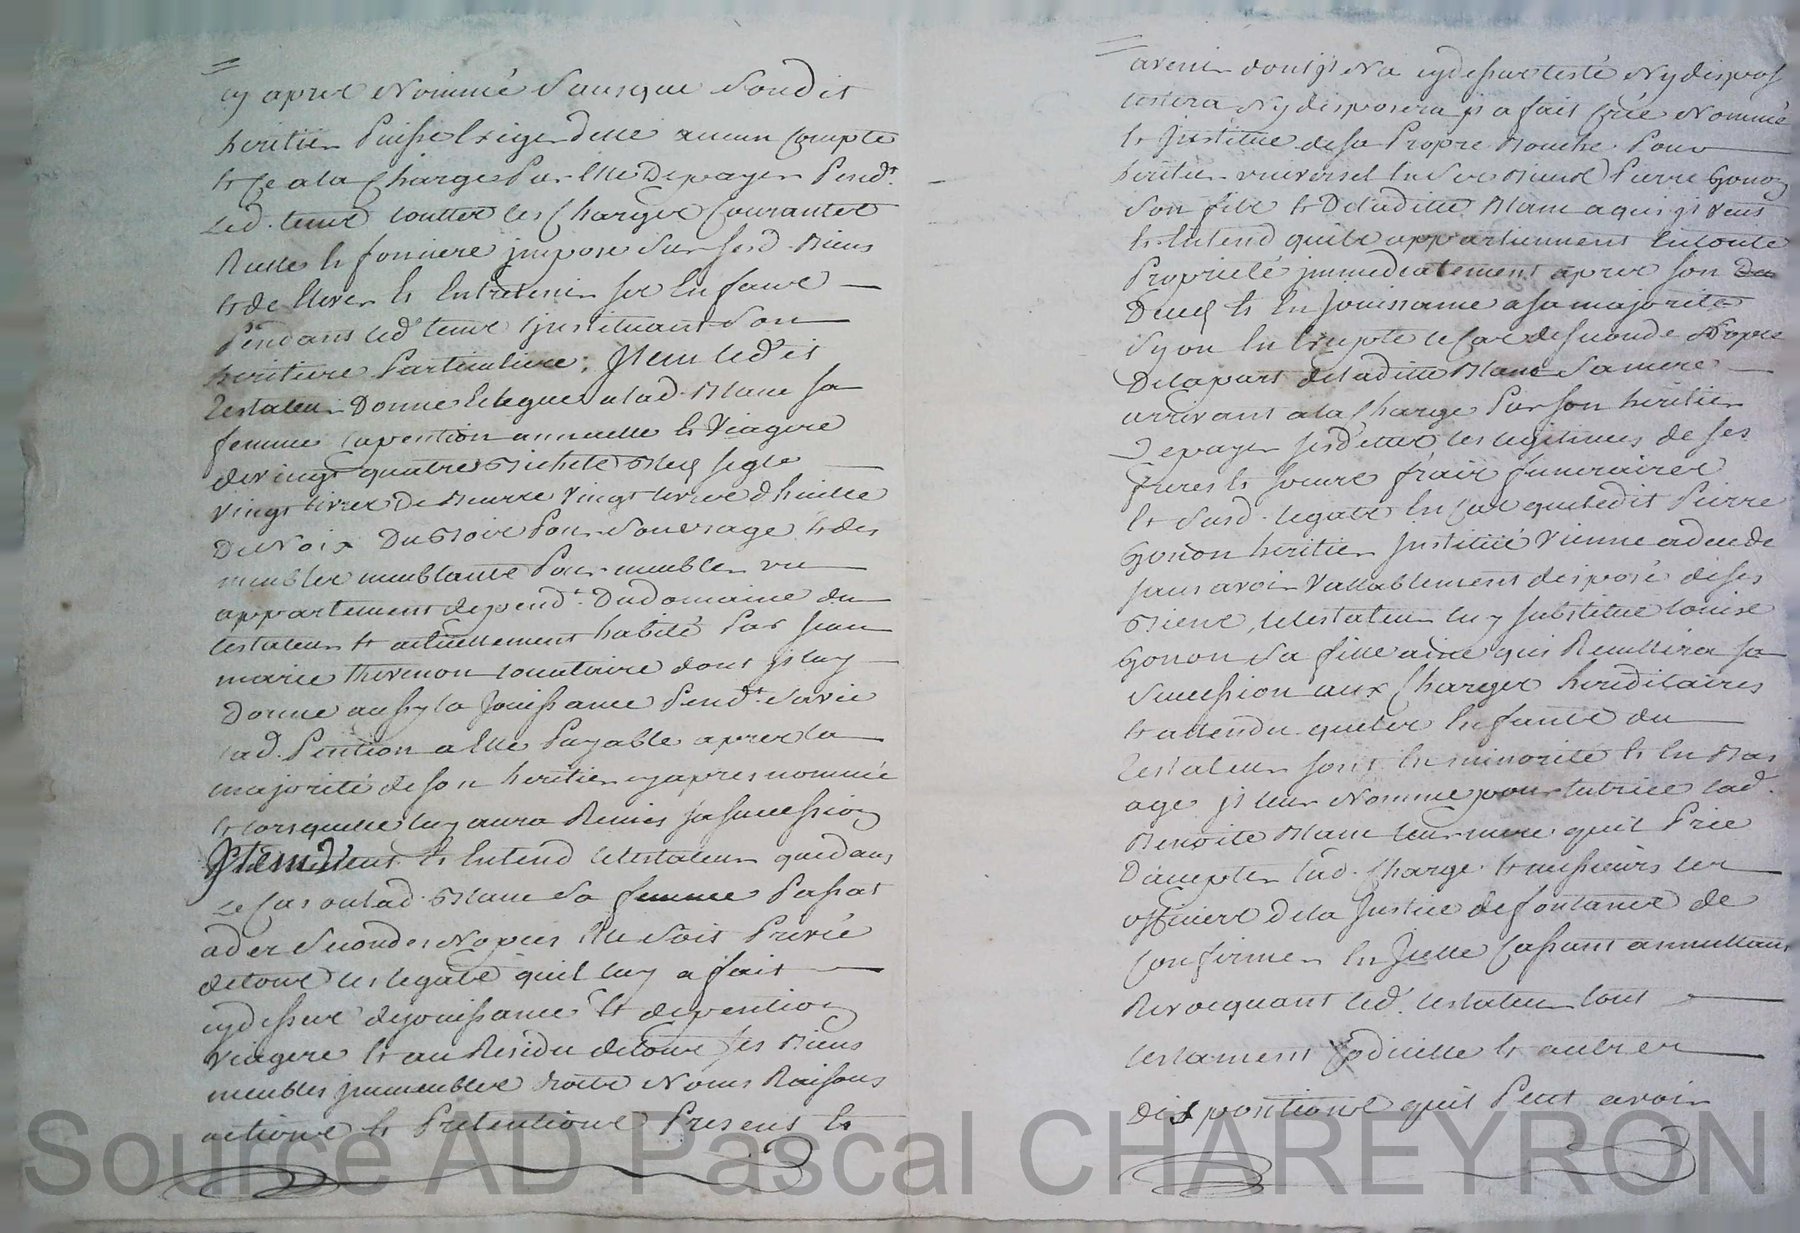 cy apres Nommé Sans que Sondit
heritier Puisse Exiger delle aucun Compte
et Ce a la Charge Par Elle De payer Pend.t
Led. tems touttes les Charges Courantes
Realle et fonciere impose Sur Sesd. Biens
et de Elever et Entretenir ses Enfans
Pendans led. tems L'jnstituant Son
heritiere Particuliere; Jtem led.it
Testateur Donne et legue a lad. Blanc sa
femme la pention annuelle et Viagere
de vingt quatre Bichets Bled segle
vingt livres De Beurre vingt livres d'huille
De Noix Du Bois Pour Son usage et des
meubles meublants Pour meubler un
appartement depend.t Du domaine du
testateur et actuellement habité Par jean
marie thevenon locataire dont jl luy
Donne aussy la Jouissance Pend.t Sa vie
lad. Pention a Elle Payable apres la
majorité de son heritier cy apres nommé
et lors quelle luy aura Remis sa succession
Jtem Veut et Entend le testateur que dans
Le Cas ou lad. Blanc Sa femme Passat
a des Secondes Nopces Elle Soit Privée
de tous les legats qu'il luy a fait
cy dessus de jouissance et de pention
viagere et au Residu de tous ses Biens
meubles jmmeubles droits Noms Raisons
actions et Pretentions Presents et
avenir dont jl N'a cy dessus testé Ny dispose
testera Ny disposera jl a fait Crée Nommé
et Jnstitue de sa Propre Bouche Pour
heritier universel Pierre Gonon
Son fils et De laditte Blanc a qui jl veut
et Entend quils appartiennent En toute
Proprieté jmmediatement apres son De
Deces et En Jouissance a sa majorité
Si on En Exepte le Cas de seconde Nopces
De la part de laditte Blanc Sa mere
arrivant a la Charge Par son heritier
De payer sesd. dettes les legitimes de ses
freres et soeurs fraix funeraires
et Susd. legats En Cas que ledit Pierre
Gonon heritier Jnstitué Vienne a deceder
sans avoir Vallablement disposé de ses
Biens, le testateur luy substitue louise
Gonon Sa fille ainé qui Remettra sa
Succession aux Charges hereditaires
et attendu que les Enfants du
Testateur sont En minorité et En Bas
age jl leur Nomme pour tutrice lad.
Benoite Blanc leur mere qu'il Prie
D'accepter lad. Charge et messieurs les
officiers de la Justice de fontanes de
Confirmer En Jcelle Cassant annullant
Revocquant led. testateur tout
testament Codicille et autres
dispositions quil Peut avoir
Source AD Pascal CHAREYRON